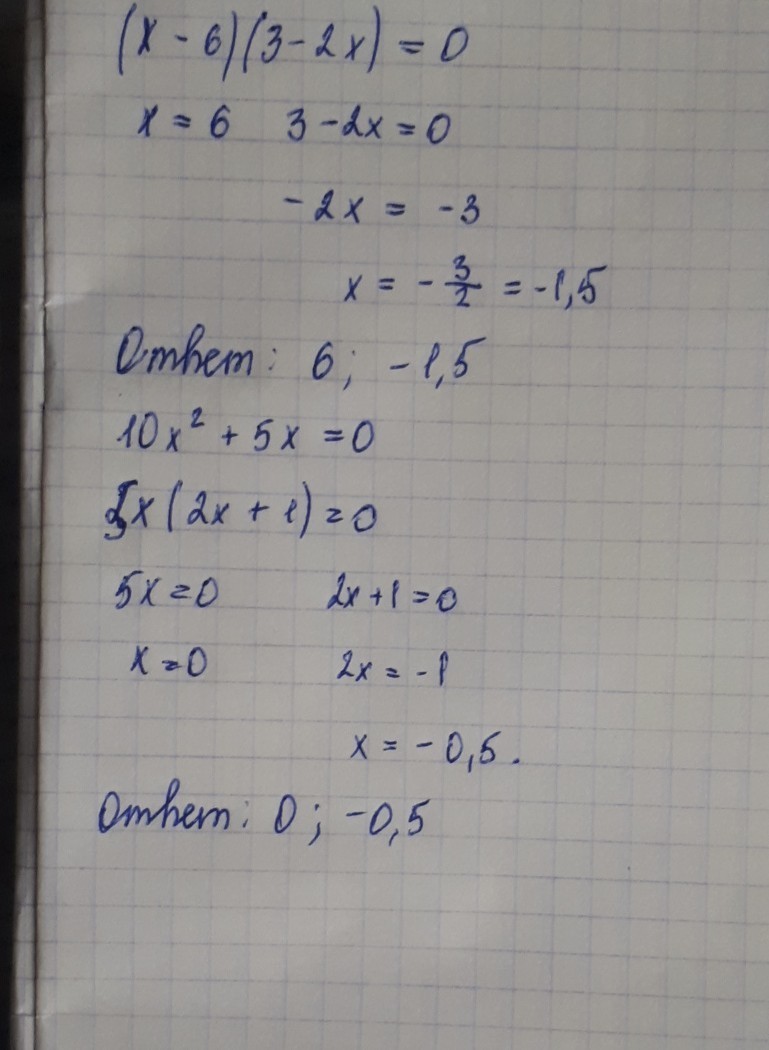 (x - 6)(3 - 2x) = 0
x = 6 3 - 2x = 0
- 2x = - 3
x = - 3/2 = -1,5
Ответ: 6; -1,5
10x² + 5x = 0
5x(2x + 1) = 0
5x = 0 2x + 1 = 0
x = 0 2x = - 1
x = - 0,5.
Ответ: 0; -0,5